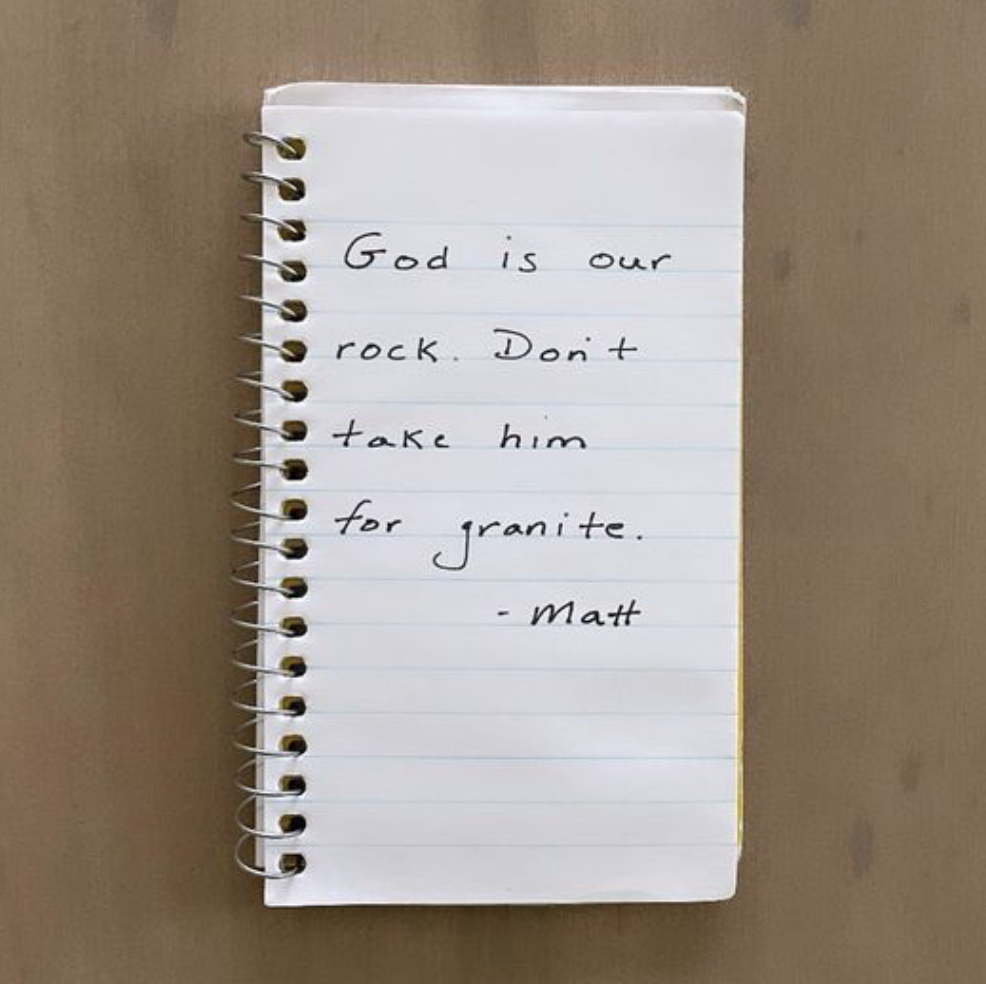 God is our
rock. Don't
take him
for granite.
- Matt